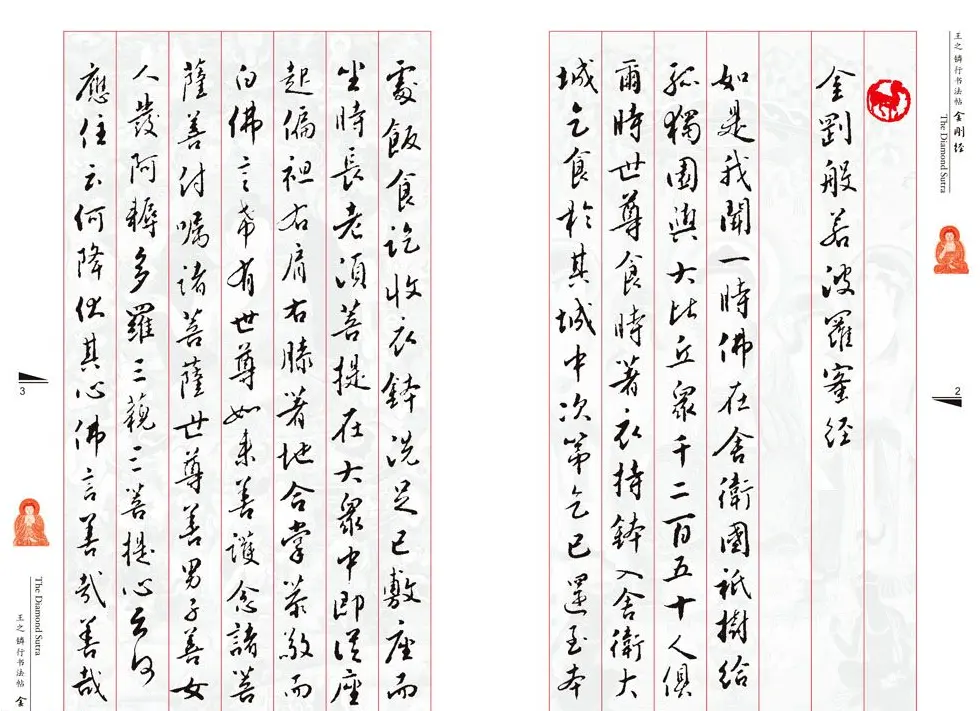 王之鏻行书法帖 金刚经
The Diamond Sutra
2
金剛般若波羅蜜经
如是我聞一時佛在舍衛國祇樹給
孤獨園與大比丘眾千二百五十人俱
爾時世尊食時著衣持鉢入舍衛大
城乞食於其城中次第乞已還至本
處飯食訖收衣鉢洗足已敷座而
坐時長老須菩提在大眾中即從座
起偏袒右肩右膝著地合掌恭敬而
白佛言希有世尊如来善護念諸菩
薩善付嘱諸菩薩世尊善男子善女
人發阿耨多羅三藐三菩提心云何
應住云何降伏其心佛言善哉善哉
3
The Diamond Sutra
王之鏻行书法帖 金